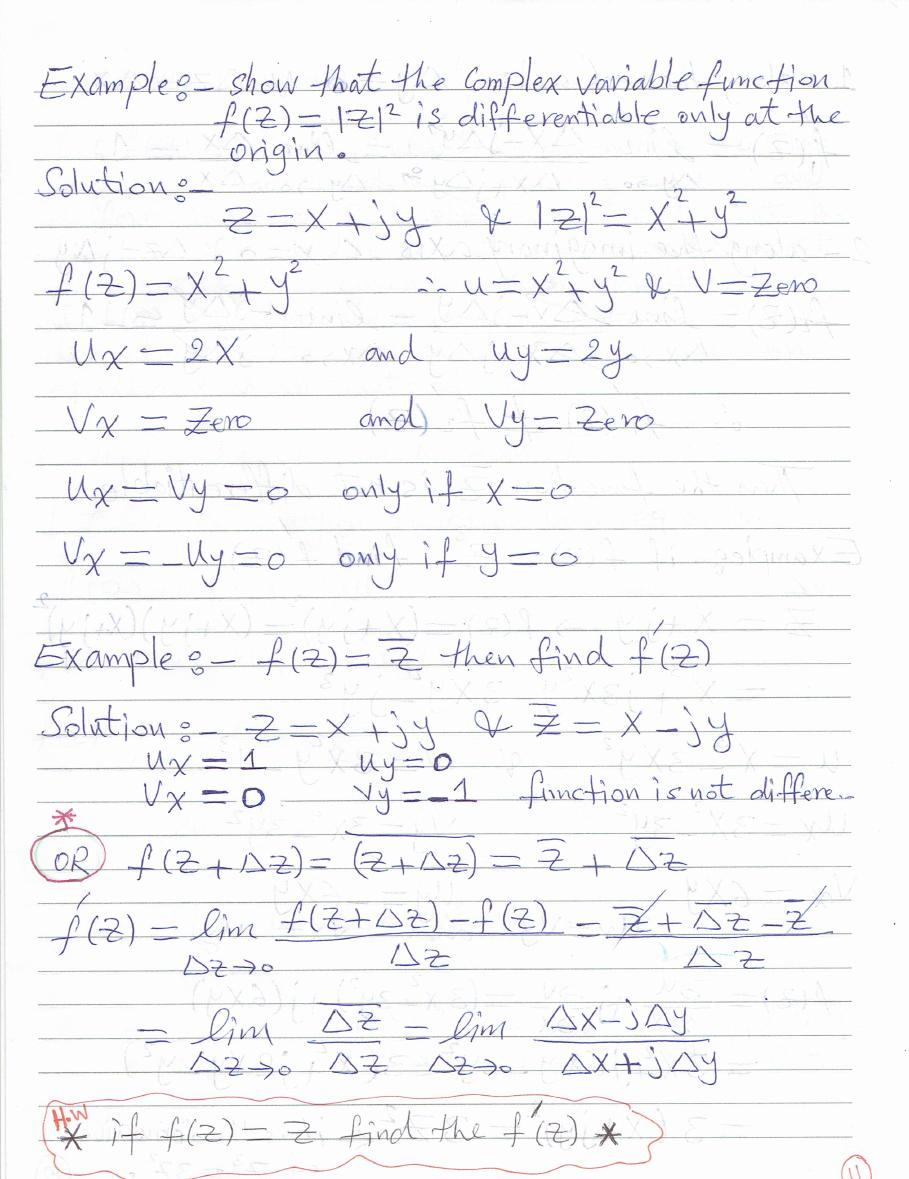 Example:- show that the complex variable function
f(z) = |z|² is differentiable only at the
origin.
Solution:-
z = x + jy & |z|² = x² + y²
f(z) = x² + y² ∴ u = x² + y² & v = zero
ux = 2x and uy = 2y
vx = zero and vy = zero
ux = vy = 0 only if x = 0
vx = -uy = 0 only if y = 0
Example:- f(z) = z̅ then find f′(z)
Solution:- z = x + jy & z̅ = x - jy
ux = 1 uy = 0
vx = 0 vy = -1 function is not differe..
*
OR f(z + Δz) = \overline{(z + Δz)} = \overline{z} + \overline{Δz}
f′(z) = lim_{Δz→0} \frac{f(z + Δz) - f(z)}{Δz} = \frac{\overline{z} + \overline{Δz} - \overline{z}}{Δz}
= lim_{Δz→0} \frac{\overline{Δz}}{Δz} = lim_{Δz→0} \frac{Δx - jΔy}{Δx + jΔy}
H.W
* if f(z) = z find the f′(z) *
11